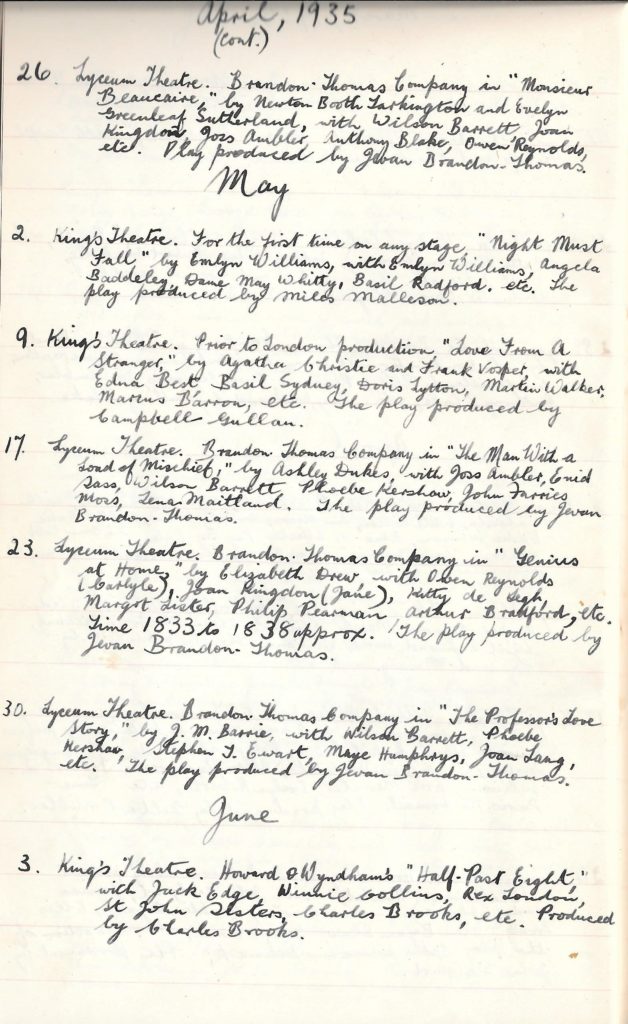 April, 1935
(cont.)
26. Lyceum Theatre. Brandon-Thomas Company in "Monsieur
Beaucaire," by Newton Booth Tarkington and Evelyn
Greenleaf Sutherland, with Wilson Barrett, Joan
Kingdon, Joss Ambler, Anthony Blake, Owen Reynolds,
etc. Play produced by Jevan Brandon-Thomas.
May
2. King's Theatre. For the first time on any stage "Night Must
Fall" by Emlyn Williams, with Emlyn Williams, Angela
Baddeley, Dame May Whitty, Basil Radford, etc. The
play produced by Miles Malleson.
9. King's Theatre. Prior to London production, "Love From A
Stranger," by Agatha Christie and Frank Vosper, with
Edna Best, Basil Sydney, Doris Lytton, Martin Walker,
Marcus Barron, etc. The play produced by
Campbell Gullan.
17. Lyceum Theatre. Brandon-Thomas Company in "The Man With a
Load of Mischief," by Ashley Dukes, with Joss Ambler, Enid
Sass, Wilson Barrett, Phoebe Kershaw, John Farries
Moss, Lena Maitland. The play produced by Jevan
Brandon-Thomas.
23. Lyceum Theatre. Brandon-Thomas Company in "Genius
at Home," by Elizabeth Drew, with Owen Reynolds
(Carlyle), Joan Kingdon (Jane), Kitty de Legh,
Margot Lister, Philip Pearman, Arthur Bradford, etc.
Time 1833 to 1838 approx. The play produced by
Jevan Brandon-Thomas.
30. Lyceum Theatre. Brandon-Thomas Company in "The Professor's Love
Story," by J. M. Barrie, with Wilson Barrett, Phoebe
Kershaw, Stephen T. Ewart, Maye Humphrys, Joan Lang,
etc. The play produced by Jevan Brandon-Thomas.
June
3. King's Theatre. Howard & Wyndham's "Half-Past Eight,"
with Jack Edge, Winnie Collins, Rex London,
St John Sisters, Charles Brooks, etc. Produced
by Charles Brooks.